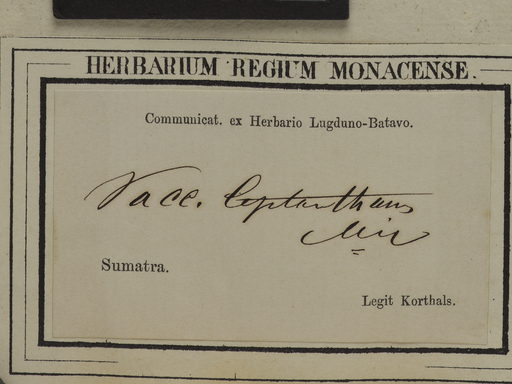 HERBARIUM REGIUM MONACENSE.
Communicat. ex Herbario Lugduno-Batavo.
Vacc. leptanthum
Miq
Sumatra.
Legit Korthals.